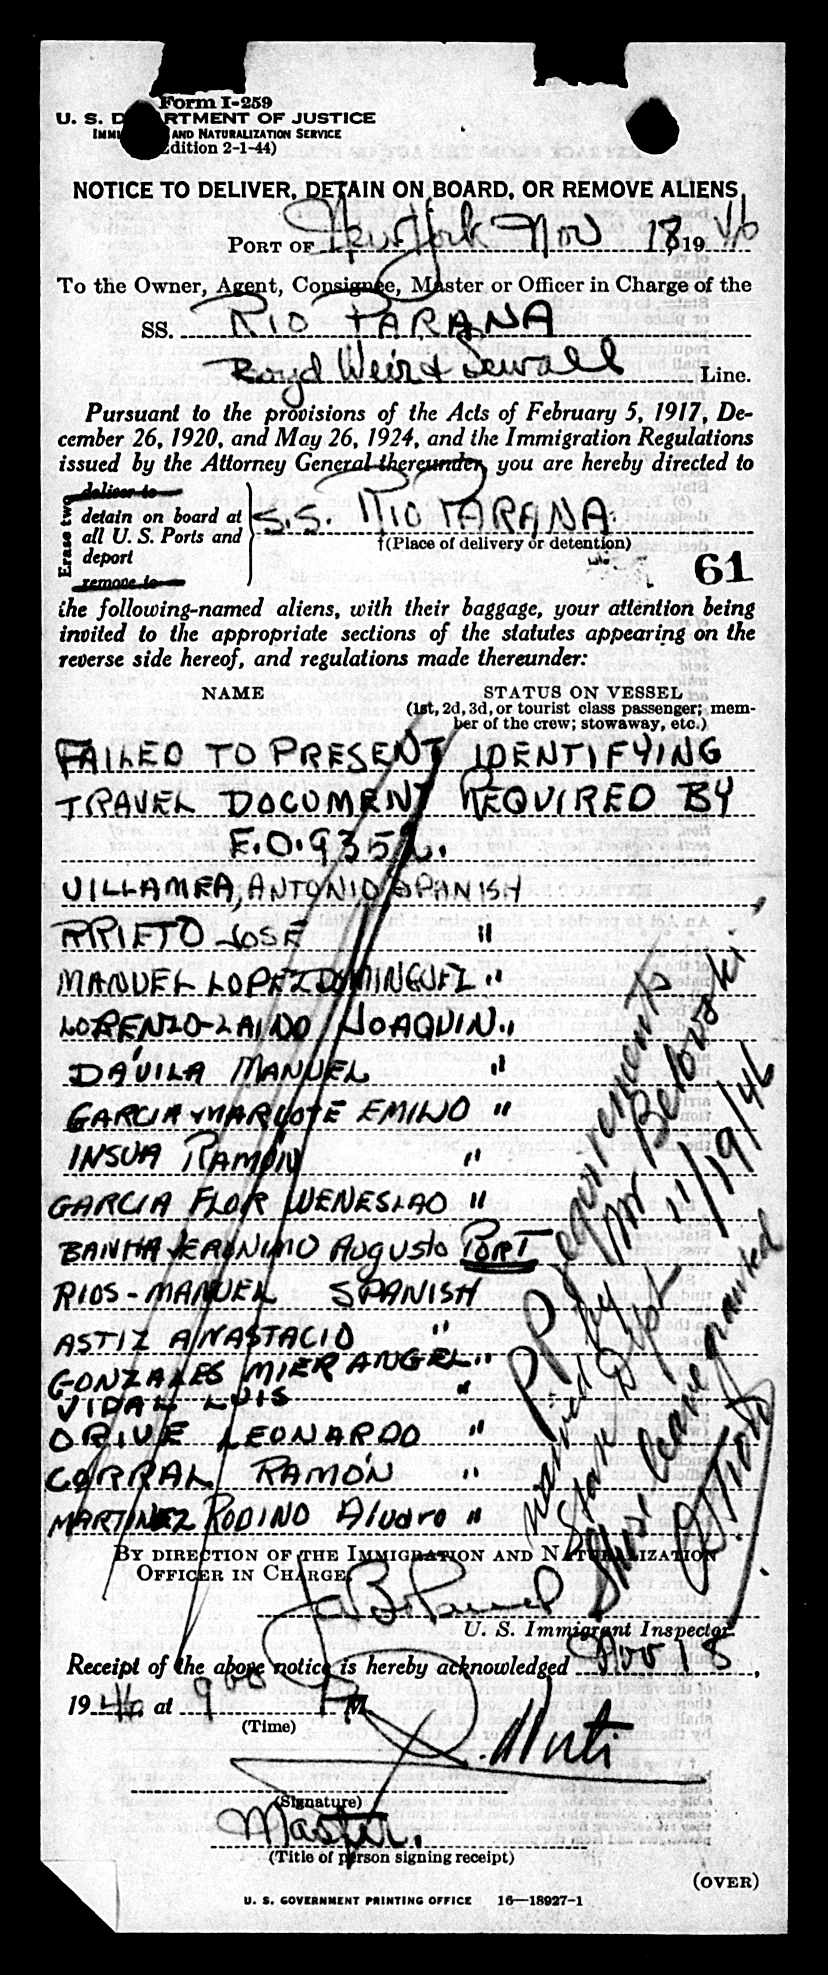 Form I-259
U. S. DEPARTMENT OF JUSTICE
IMMIGRATION AND NATURALIZATION SERVICE
(Edition 2-1-44)
NOTICE TO DELIVER, DETAIN ON BOARD, OR REMOVE ALIENS
PORT OF New York Nov 18, 19 46
To the Owner, Agent, Consignee, Master or Officer in Charge of the
SS. RIO PARANA
Boyd Weir & Sewall Line.
Pursuant to the provisions of the Acts of February 5, 1917, De-
cember 26, 1920, and May 26, 1924, and the Immigration Regulations
issued by the Attorney General thereunder, you are hereby directed to
Erase two
deliver to
detain on board at
all U. S. Ports and
deport
remove to
S.S. RIO PARANA
†(Place of delivery or detention)
61
the following-named aliens, with their baggage, your attention being
invited to the appropriate sections of the statutes appearing on the
reverse side hereof, and regulations made thereunder:
NAME STATUS ON VESSEL
(1st, 2d, 3d, or tourist class passenger; mem-
ber of the crew; stowaway, etc.)
FAILED TO PRESENT IDENTIFYING
TRAVEL DOCUMENT REQUIRED BY
E.O. 9352.
VILLAMEA, ANTONIO SPANISH
PRIETO JOSE "
MANUEL LOPEZ DOMINGUEZ "
LORENZO-LAIDO JOAQUIN "
DAVILA MANUEL "
GARCIA Y MARCOTE EMILIO "
INSUA RAMON "
GARCIA FLOR WENESLAO "
BANHA JERONIMO Augusto PORT
RIOS - MANUEL SPANISH
ASTIZ ANASTACIO "
GONZALES MIER ANGEL "
VIDAL LUIS "
ORIVE LEONARDO "
CORRAL RAMON "
MARTINEZ RODINO Alvaro "
PP requirements
waived by Mr Belovski
State Dept 11/19/46
Shore leave granted
BY DIRECTION OF THE IMMIGRATION AND NATURALIZATION
OFFICER IN CHARGE,
U. S. Immigrant Inspector.
Receipt of the above notice is hereby acknowledged Nov 18,
19 46 at 9 00 PM.
(Time)
(Signature)
Master.
(Title of person signing receipt)
(OVER)
U. S. GOVERNMENT PRINTING OFFICE 16—18927-1